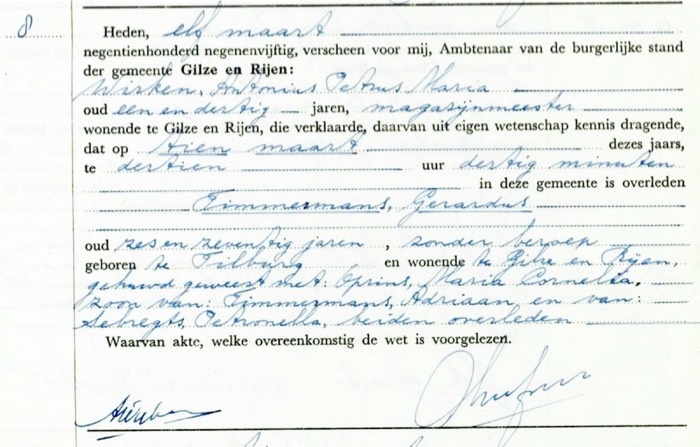 8
Heden, elf maart
negentienhonderd negenenvijftig, verscheen voor mij, Ambtenaar van de burgerlijke stand
der gemeente Gilze en Rijen:
Wirken, Antonius Petrus Maria
oud een en dertig jaren, magazijnmeester
wonende te Gilze en Rijen, die verklaarde, daarvan uit eigen wetenschap kennis dragende,
dat op tien maart dezes jaars,
te dertien uur dertig minuten
in deze gemeente is overleden
Timmermans, Gerardus
oud zes en zeventig jaren , zonder beroep
geboren te Tilburg en wonende te Gilze en Rijen,
gehuwd geweest met: Oprins, Maria Cornelia,
zoon van: Timmermans, Adriaan, en van:
Sebregts, Petronella, beiden overleden
Waarvan akte, welke overeenkomstig de wet is voorgelezen.